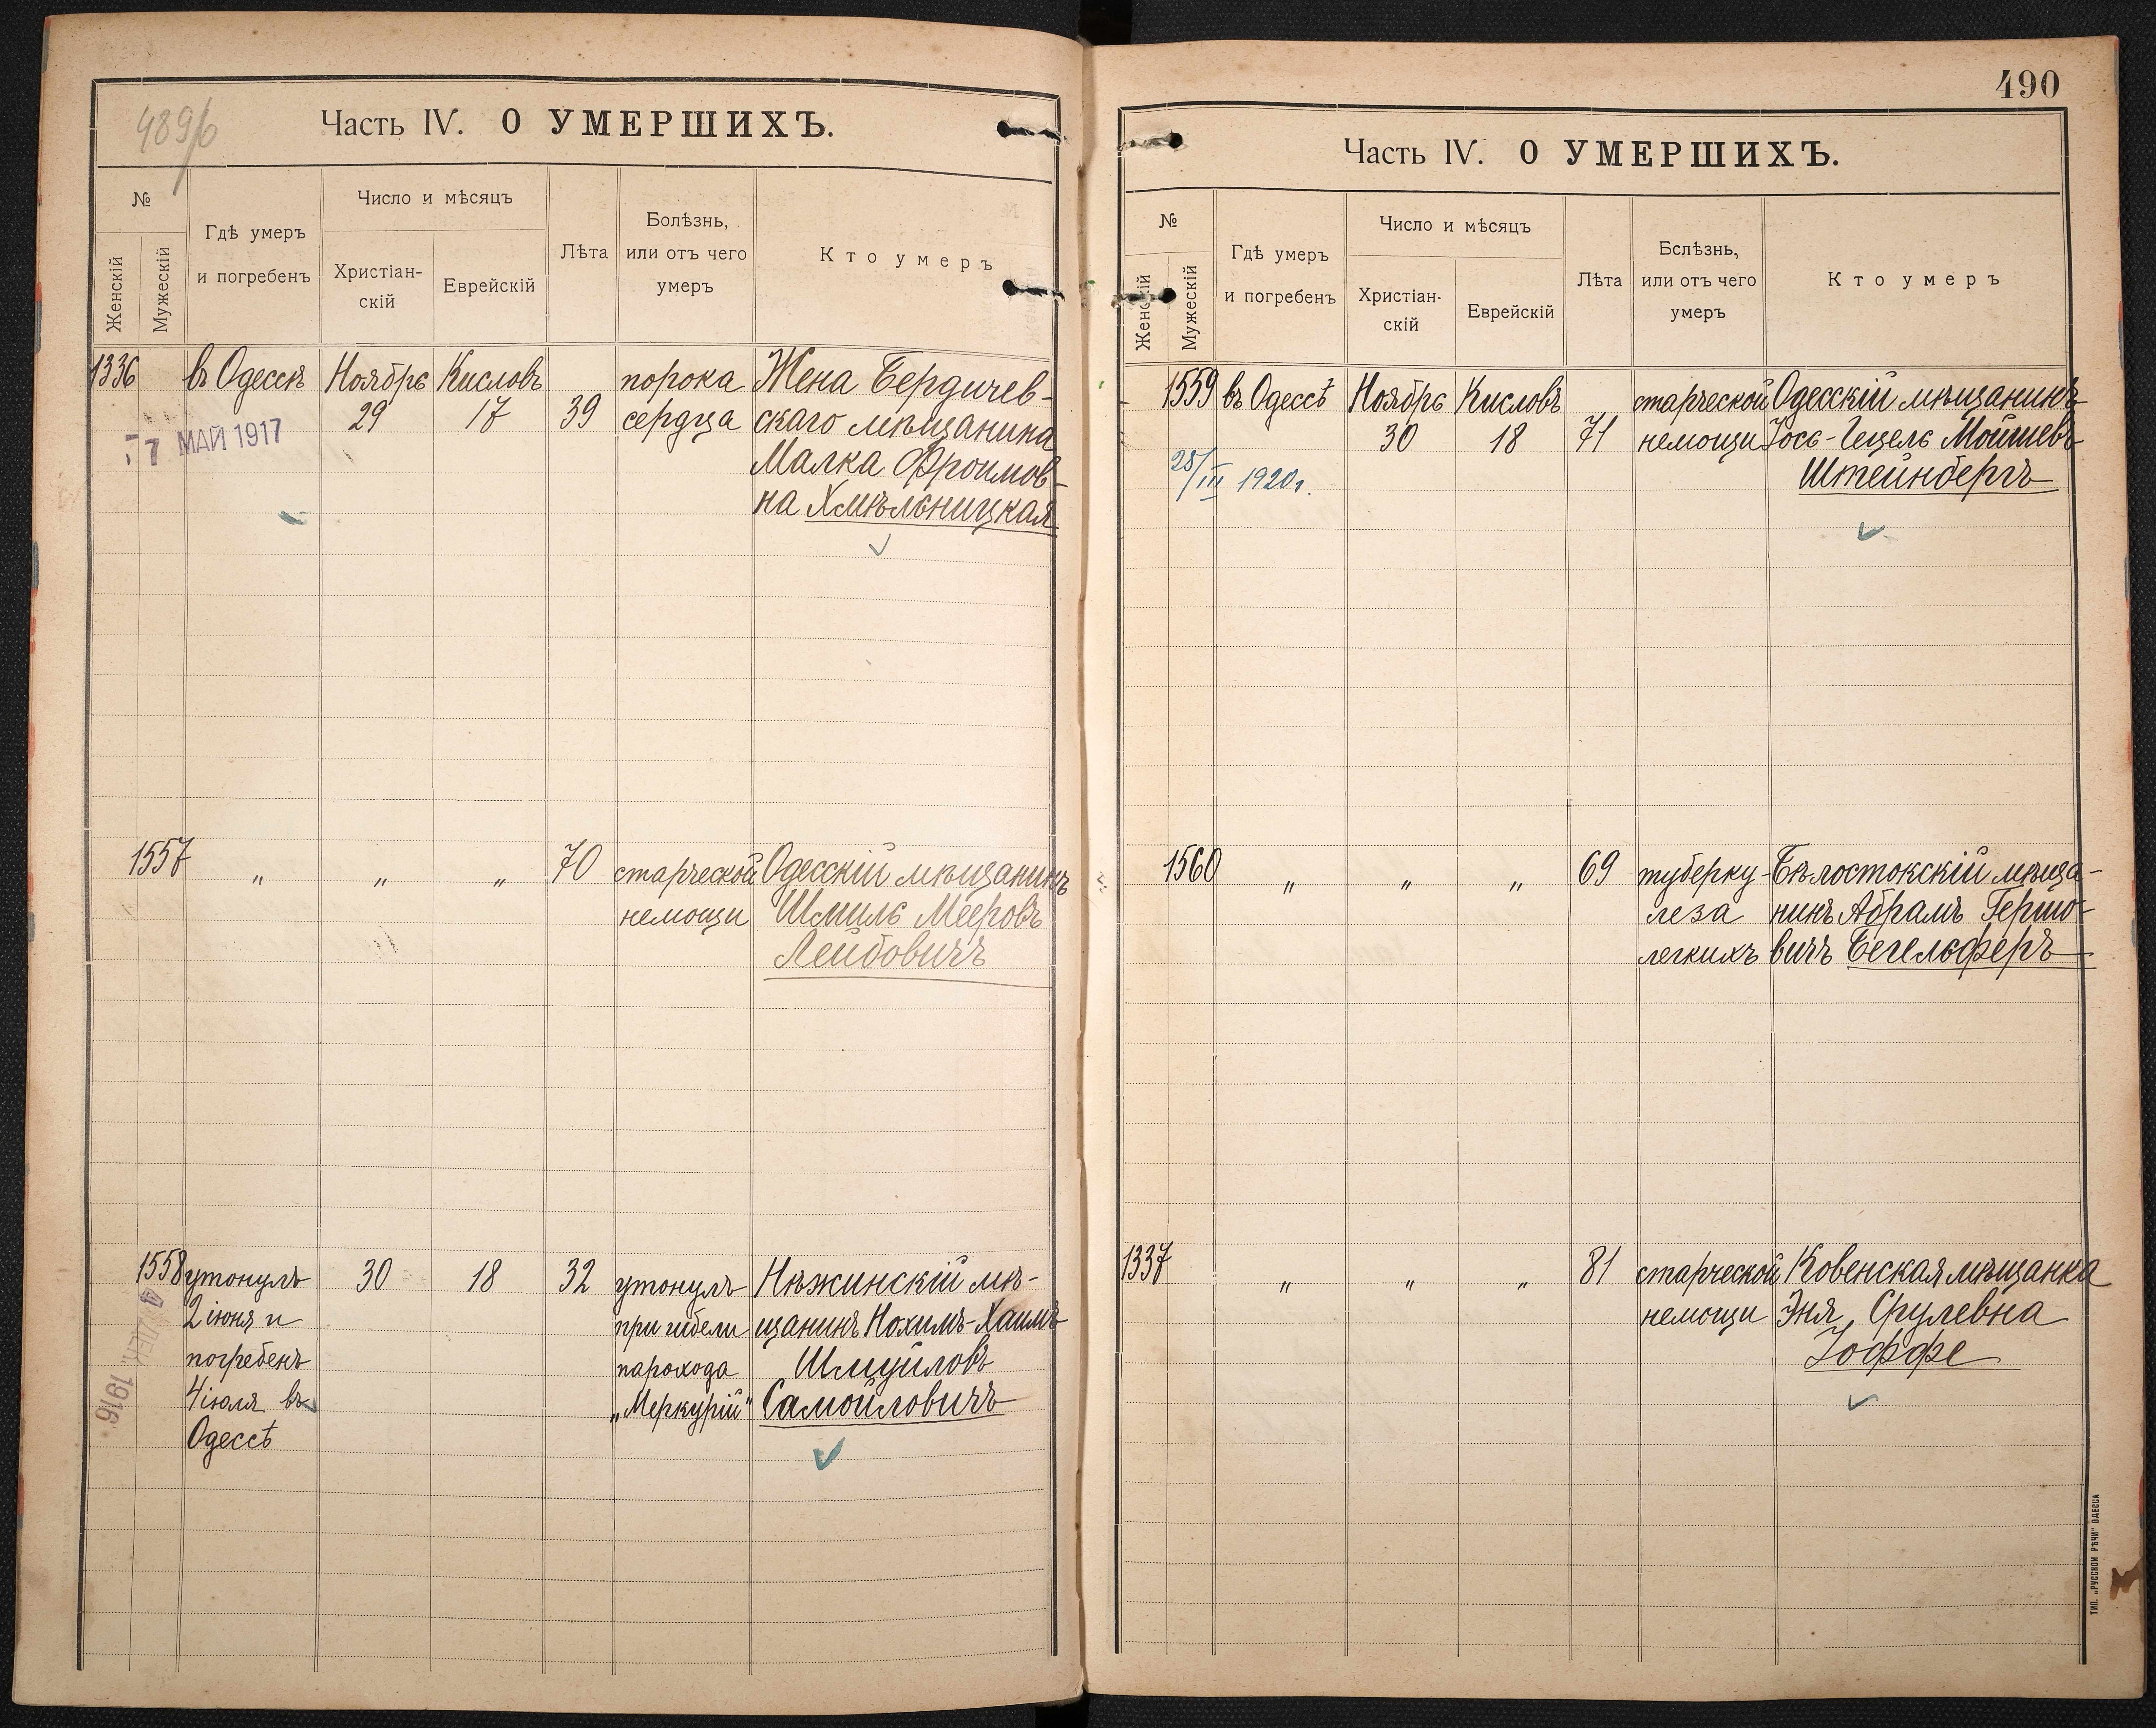 489/б
Часть IV. О УМЕРШИХЪ.
№
Женскій
Мужескій
Гдѣ умеръ
и погребенъ
Число и мѣсяцъ
Христіан-
скій
Еврейскій
Лѣта
Болѣзнь,
или отъ чего
умеръ
Кто умеръ
1336 въ Одессѣ Ноябрь Кисловъ порока Жена Бердичев-
29 17 39 сердца скаго мѣщанина
7 МАЙ 1917
Малка Фроимов-
на Хмѣльницкая
1557 " " " 70 старческой Одесскій мѣщанинъ
немощи Шмиль Мееровъ
Лейбовичъ
1558 утонулъ 30 18 32 утонулъ Нѣжинскій мѣ-
2 іюня и при гибели щанинъ Нохимъ-Хаимъ
погребенъ парохода Шмуйловъ
4 іюля въ „Меркурій" Самойловичъ
Одессѣ
4 ДЕК. 1916
490
Часть IV. О УМЕРШИХЪ.
№
Женскій
Мужескій
Гдѣ умеръ
и погребенъ
Число и мѣсяцъ
Христіан-
скій
Еврейскій
Лѣта
Бслѣзнь,
или отъ чего
умеръ
Кто умеръ
1559 въ Одессѣ Ноябрь Кисловъ старческой Одесскій мѣщанинъ
30 18 71 немощи Іось-Гецель Мошшевъ
28/III 1920 г.
Штейнбергъ
1560 " " " 69 туберку- Бѣлостокскій мѣща-
леза нинъ Абрамъ Гершо-
легкихъ вичъ Бегельферъ
1337 " " " 81 старческой Ковенская мѣщанка
немощи Эня Срулевна
Іоффе
ТИП. „РУССКОЙ РѢЧИ" ОДЕССА